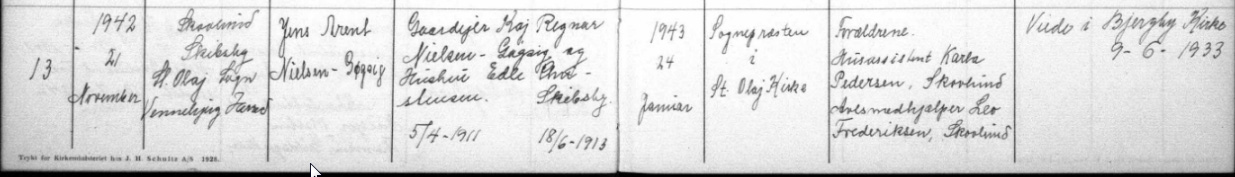 13
1942
21
November
Skovlund
Skibsby
St. Olaj Sogn
Vennebjerg Herred
Jens Arent
Nielsen-Gøgsig
Gaardejer Kaj Regnar
Nielsen-Gøgsig og
Hustru Edle Chri-
stensen. Skibsby.
5/4-1911 18/6-1913
1943
24
Januar
Sognepræsten
i
St. Olaj Kirke
Forældrene.
Husassistent Karla
Pedersen, Skovlund
Avlsmedhjælper Leo
Frederiksen, Skovlund
Viede i Bjergby Kirke
9-6-1933
Trykt for Kirkeministeriet hos J. H. Schultz A/S 1928.